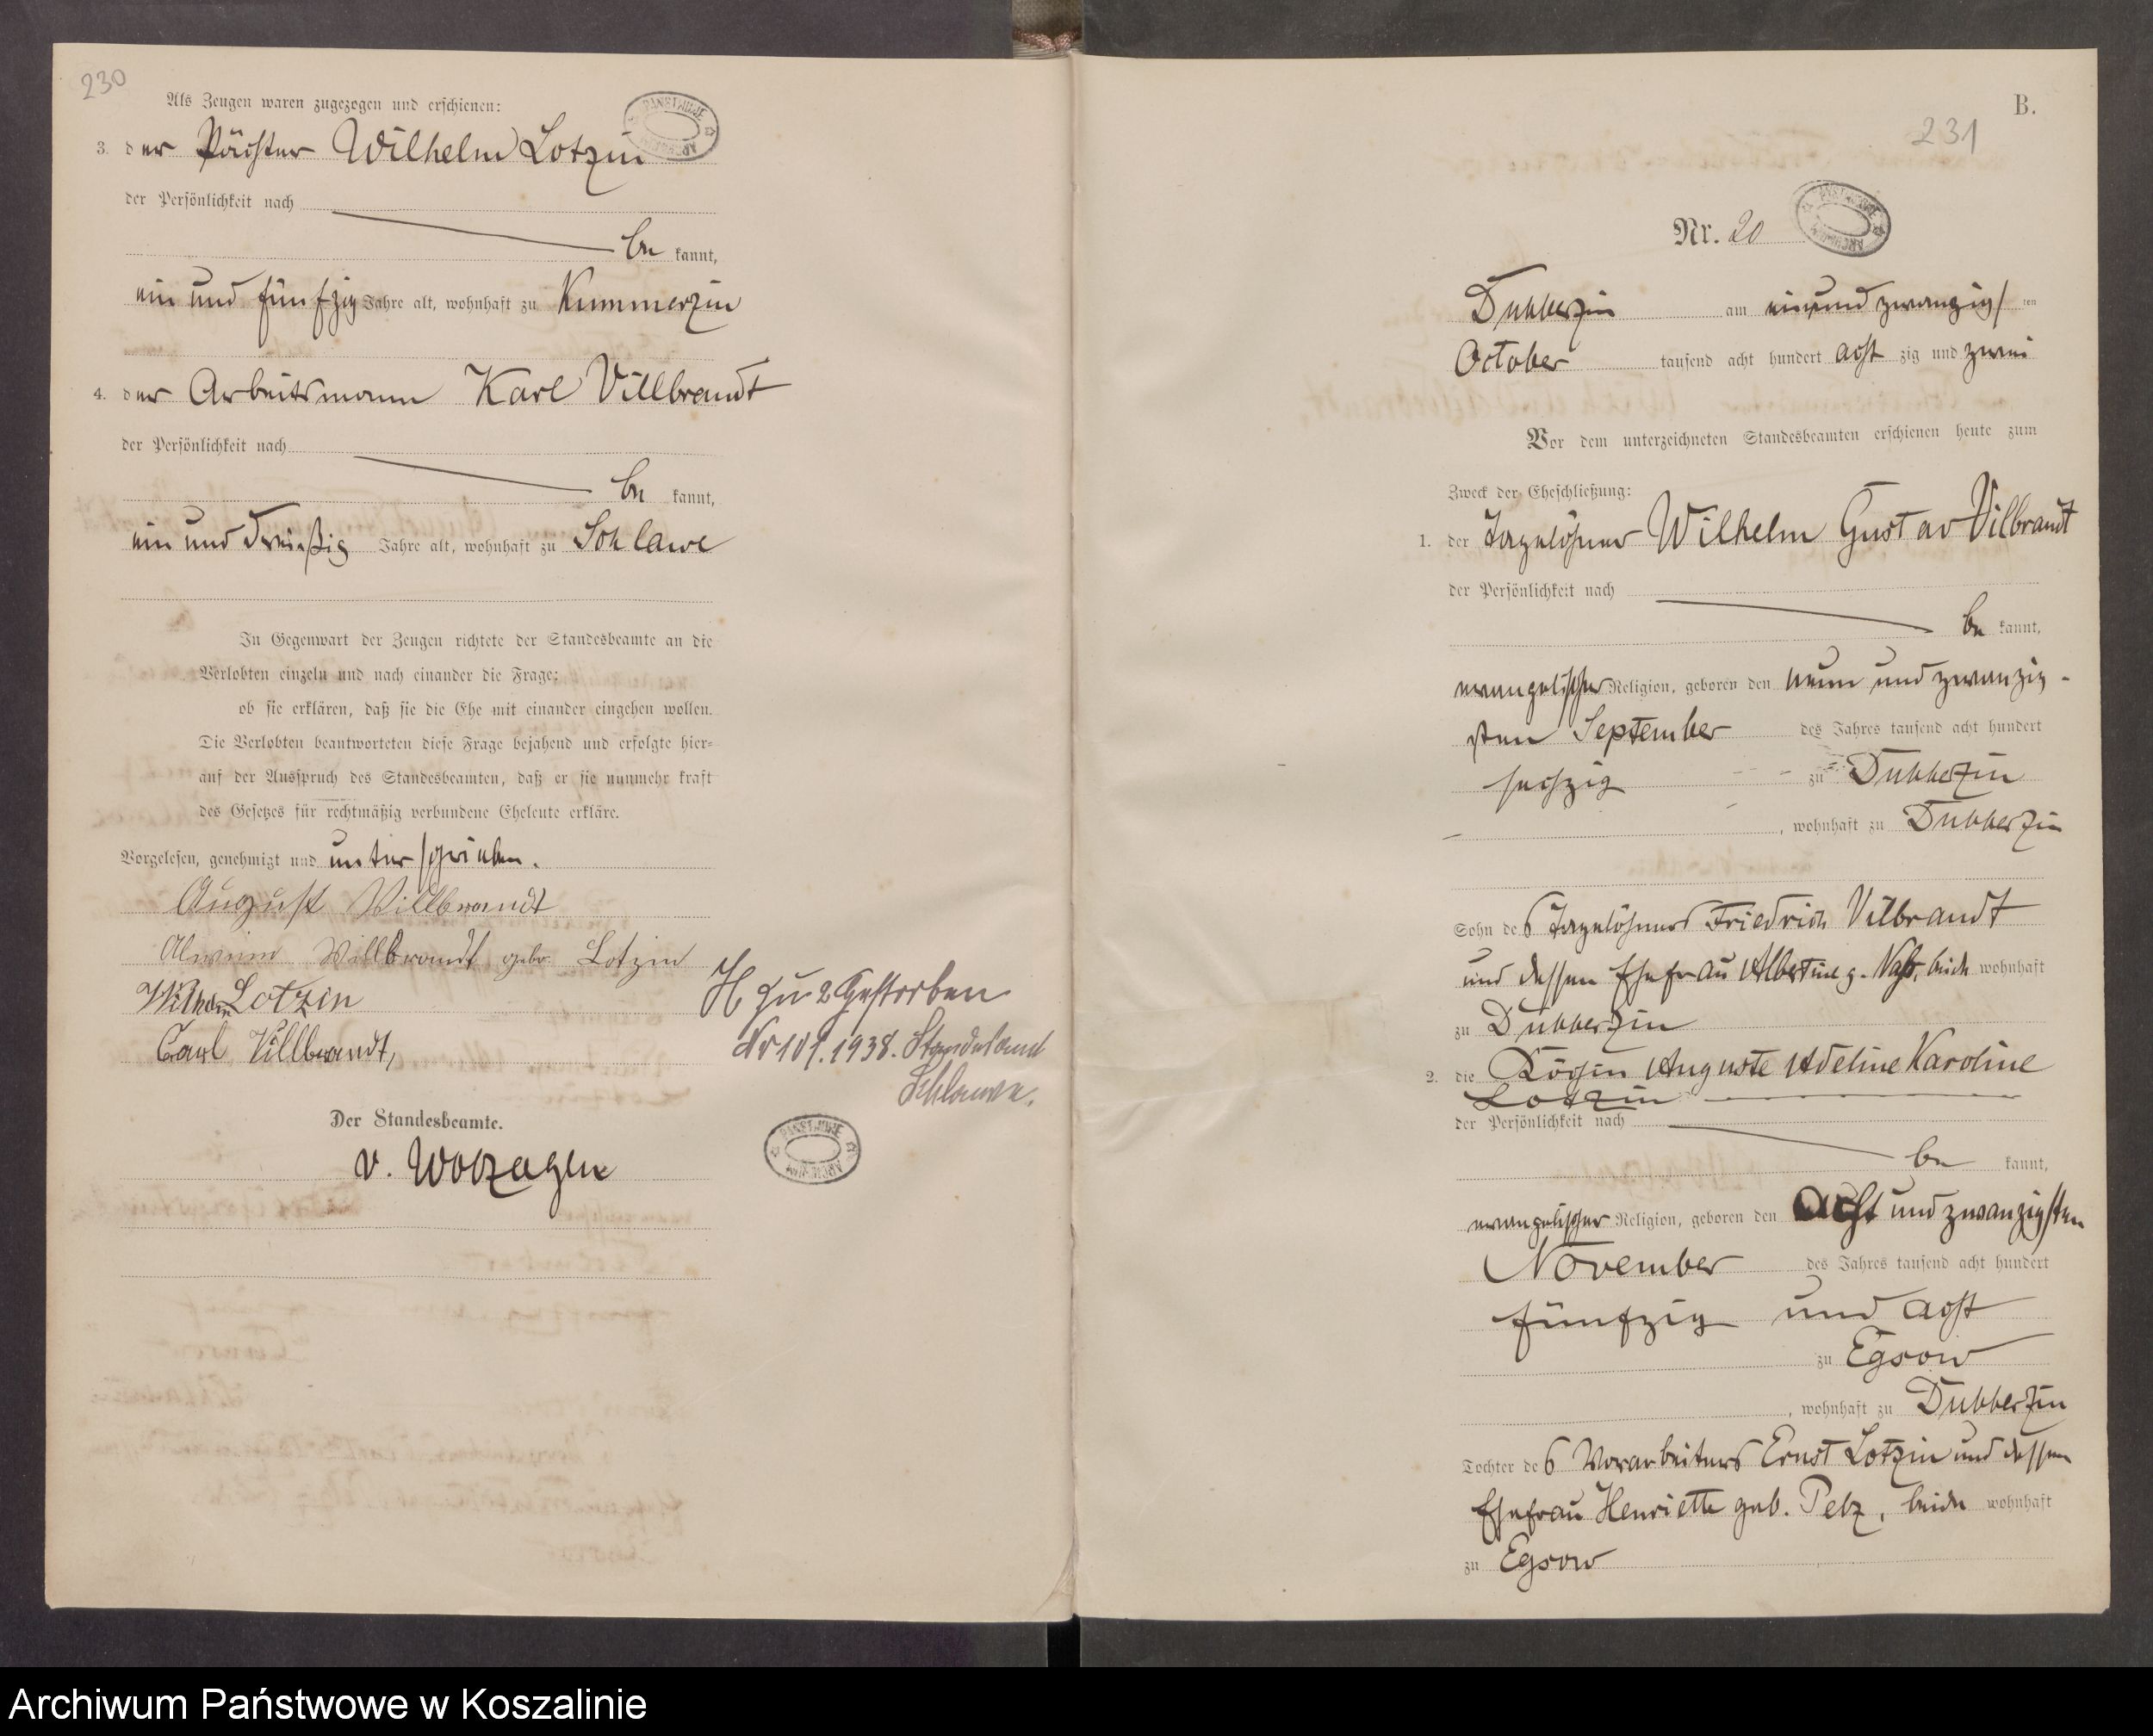 230
Als Zeugen waren zugezogen und erschienen:
3. der Pächter Wilhelm Lotzin
der Persönlichkeit nach
be kannt,
ein und fünfzig Jahre alt, wohnhaft zu Kummerzin
4. der Arbeitsmann Karl Villbrandt
der Persönlichkeit nach
be kannt,
ein und dreißig Jahre alt, wohnhaft zu Schlawe
In Gegenwart der Zeugen richtete der Standesbeamte an die
Verlobten einzeln und nach einander die Frage:
ob sie erklären, daß sie die Ehe mit einander eingehen wollen.
Die Verlobten beantworteten diese Frage bejahend und erfolgte hier-
auf der Ausspruch des Standesbeamten, daß er sie nunmehr kraft
des Gesetzes für rechtmäßig verbundene Eheleute erkläre.
Vorgelesen, genehmigt und unterschrieben.
August Villbrandt
Willbrandt gebr. Lotzin
Wilhelm Lotzin
Carl Villbrandt,
H zu 2 Gestorben
Nr 101. 1938. Standesamt
Schlawe.
Der Standesbeamte.
v. Woizagen
PAŃSTWOWE ARCHIWUM
B.
231
Nr. 20
Dubberzin am einundzwanzigsten
October tausend acht hundert acht zig und zwei
Vor dem unterzeichneten Standesbeamten erschienen heute zum
Zweck der Eheschließung:
1. der Tagelöhner Wilhelm Gustav Vilbrandt
der Persönlichkeit nach
be kannt,
evangelischer Religion, geboren den neun und zwanzig-
sten September des Jahres tausend acht hundert
sechzig zu Dubberzin
, wohnhaft zu Dubberzin
Sohn des Tagelöhners Friedrich Vilbrandt
und dessen Ehefrau Albertine g. beide wohnhaft
zu Dubberzin
2. die Köchin Auguste Adeline Karoline
Lotzin
der Persönlichkeit nach
be kannt,
evangelischer Religion, geboren den acht und zwanzigsten
November des Jahres tausend acht hundert
fünfzig und acht
zu Egsow
, wohnhaft zu Dubberzin
Tochter des Vorarbeiters Ernst Lotzin und dessen
Ehefrau Henriette geb. Pelz, beide wohnhaft
zu Egsow
Archiwum Państwowe w Koszalinie